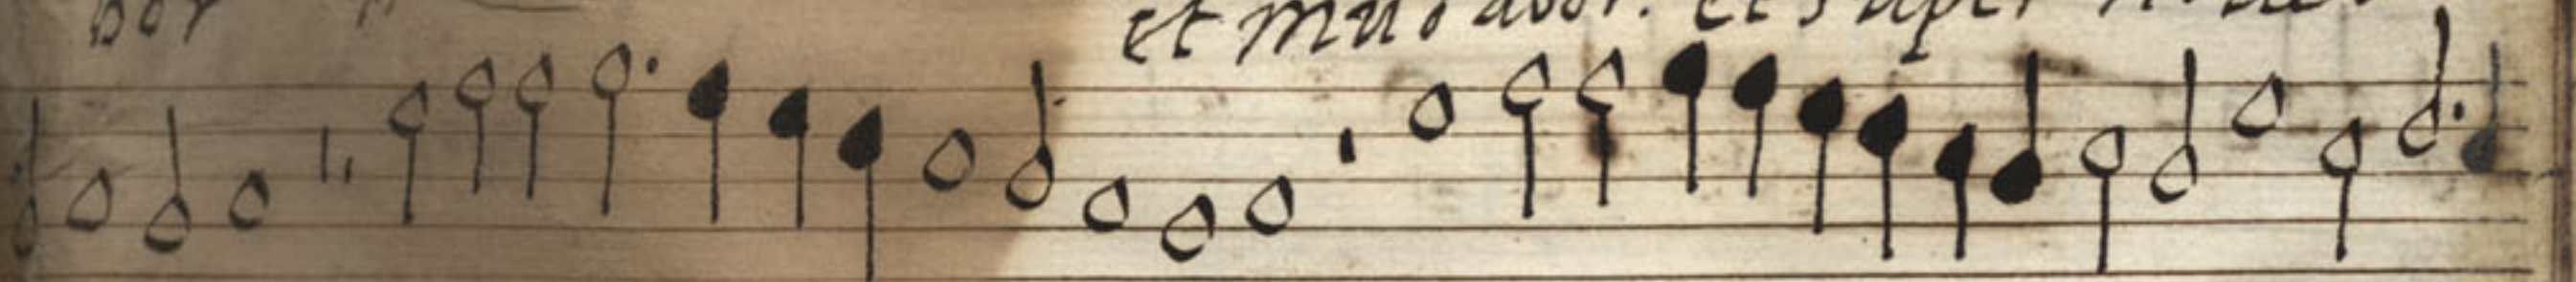 bor
et mundabor. et super niuem